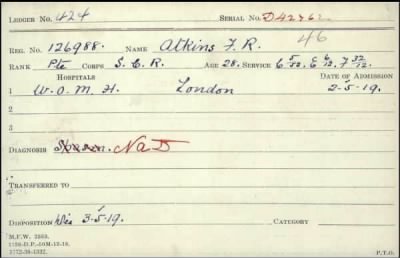 LEDGER No. 424 SERIAL No. D42762
46
REG. No. 126988. NAME Atkins F. R.
RANK Pte CORPS S. C. R. AGE 28. SERVICE 6 5/12, E 6/12, F 32/12.
HOSPITALS DATE OF ADMISSION
1 W. O. M. H. London 2-5-19.
2
3
4
DIAGNOSIS NaD
TRANSFERRED TO
DISPOSITION Dis 3-5-19. CATEGORY
M.F.W. 2559.
1772-39-1332. P.T.O.